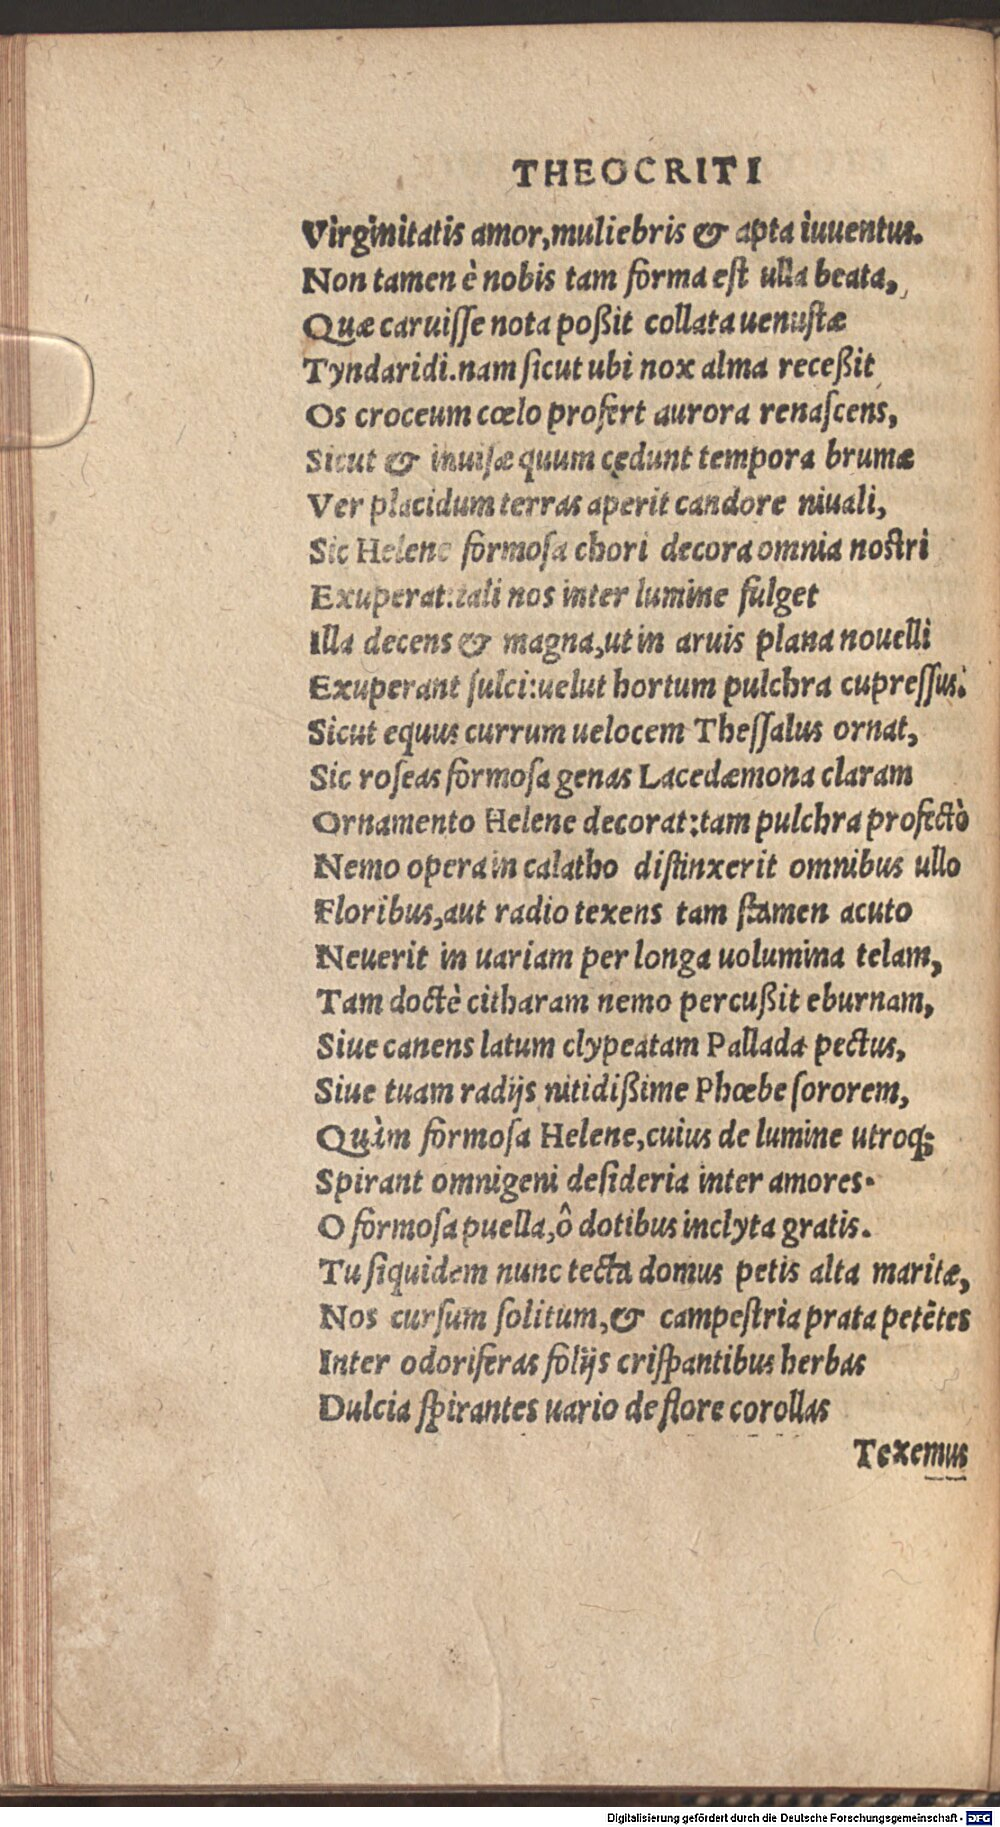 THEOCRITI
Virginitatis amor,muliebris & apta iuuentus.
Non tamen è nobis tam forma est ulla beata,
Quæ caruisse nota poßit collata uenustæ
Tyndaridi.nam sicut ubi nox alma receßit
Os croceum cœlo profert aurora renascens,
Sicut & inuisæ quum cędunt tempora brumæ
Ver placidum terras aperit candore niuali,
Sic Helene formosa chori decora omnia nostri
Exuperat:tali nos inter lumine fulget
Illa decens & magna,ut in aruis plana nouelli
Exuperant sulci:uelut hortum pulchra cupressus:
Sicut equus currum uelocem Thessalus ornat,
Sic roseas formosa genas Lacedæmona claram
Ornamento Helene decorat:tam pulchra profectò
Nemo opera in calatho distinxerit omnibus ullo
Floribus,aut radio texens tam stamen acuto
Neuerit in uariam per longa uolumina telam,
Tam doctè citharam nemo percußit eburnam,
Siue canens latum clypeatam Pallada pectus,
Siue tuam radijs nitidißime Phœbe sororem,
Quàm formosa Helene,cuius de lumine utroq;
Spirant omnigeni desideria inter amores.
O formosa puella,ô dotibus inclyta gratis.
Tu siquidem nunc tecta domus petis alta maritæ,
Nos cursum solitum,& campestria prata petētes
Inter odoriferas folijs crispantibus herbas
Dulcia spirantes uario de flore corollas
Texemus
Digitalisierung gefördert durch die Deutsche Forschungsgemeinschaft - DFG